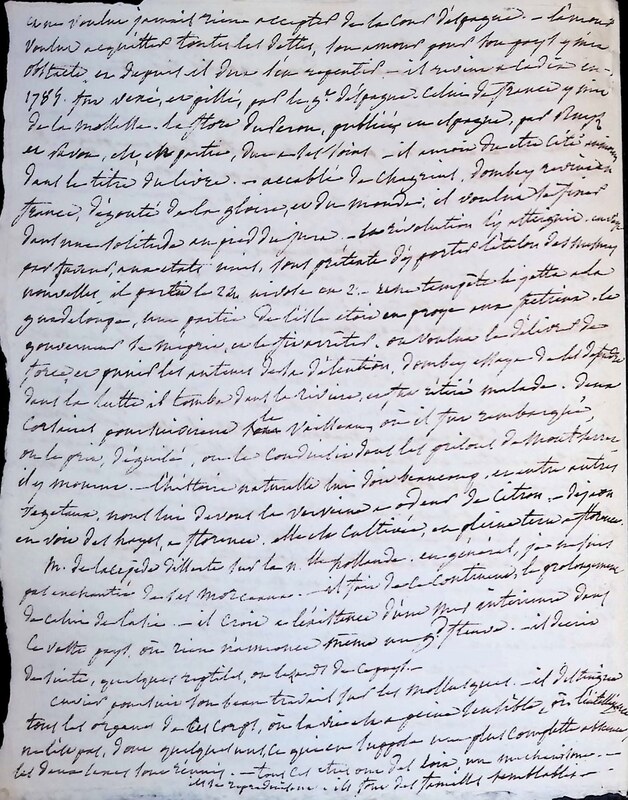 voulut jamais rien accepter de la cour d'espagne. — le mena
voulut acquitter toutes les dettes, son amour pour son pays y mit
obstacle, et depuis il dut s'en repentir — il revint a Cadix en
1785. fut vexé, et pillé, par le g.t d'espagne. Celui de france y mit
de la mollesse. la flore du Perou, publiée en espagne, par Ruys
et Pavon, est en partie, due a ses soins — il auroit du etre cité
dans le titre du livre. — accablé de chagrins, dombey revint en
france, dégouté de la gloire, et du monde; il voulut se fixer
dans une solitude au pied du jura — la révolution l'y atteignit.
par faveur aux etats unis, sous prétexte d'y porter l'étalon des mesures
nouvelles, il partit le 24 nivose an 2. — une tempête le jetta a la
guadeloupe, une partie de l'isle etoit en proye aux le
gouverneur et le fit arrêter, on voulut le délivrer de
force, et punir les auteurs de sa détention, dombey essaya de les défendre
dans la lutte il tomba dans la riviere, et fut retiré malade. deux
Corsaires poursuivirent le vaisseau, où il fut rembarqué,
on le prit, déguisé, on le conduisit dans les prisons de Montserrat
il y mourut. — l'histoire naturelle lui doit beaucoup, et entre autres
vegetaux, nous lui devons la verveine a odeur de citron. — deja on
en voit des hayes, a florence. elle est cultivée, en pleine terre a florence.
M. de lacepède disserte sur la n.lle hollande. en général, je ne suis
pas enchantée de ses morceaux. — il fait de ce continent, le prolongement
de celui de l'asie. — il croit a l'existence d'une mer intérieure dans
ce vaste pays, où rien n'annonce même un g.d fleuve. — il décrit
de suite, quelques reptiles, ou lezards de ce pays. —
Cuvier poursuit son beau travail sur les mollusques. — il distingue
tous les organes de ces corps, où la vie est a peine sensible, où l'intelligence
ne l'est pas, dont quelques uns, ce qui en suppose une plus complette absence,
les deux sexes sont réunis. — tous ces etres ont des loix, un mechanisme. —
ils se reproduisent. ils font des familles semblables —